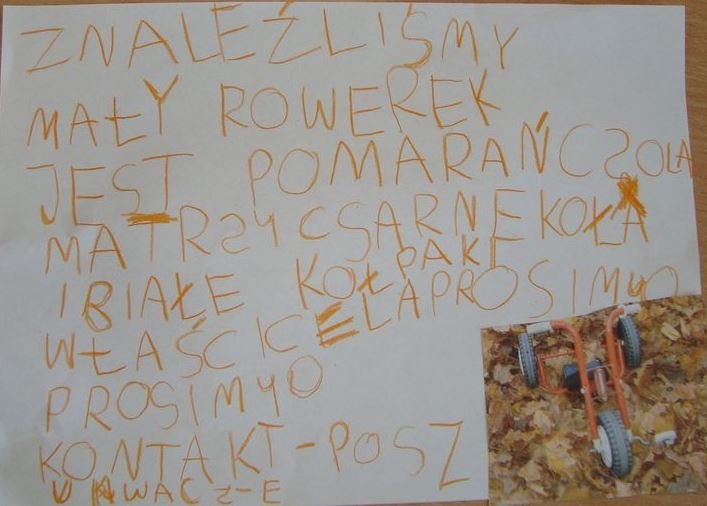 ZNALEŹLIŚMY
MAŁY ROWEREK
JEST POMARAŃCZOŁA
MA TRZY CSARNE KOŁA
I BIAŁE KOŁPAKI
WŁAŚCICELA PROSIMYO
PROSIMYO
KONTAKT-POSZ
UKIWACZ-E